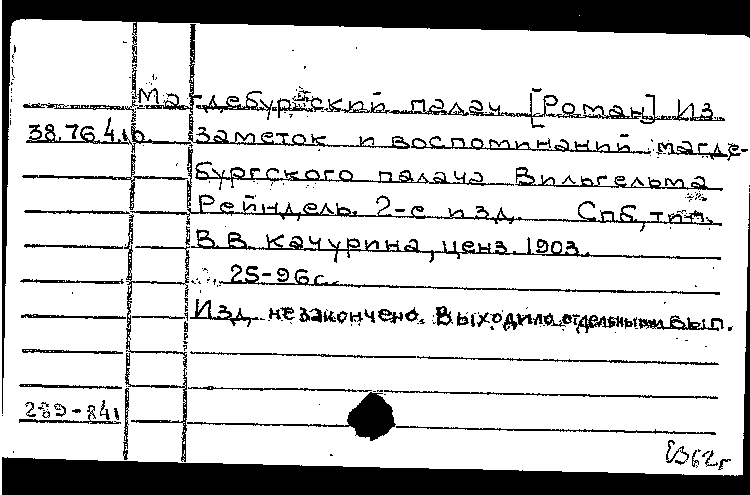 Магдебургский палач [Роман] Из
38.76.4.10. заметок и воспоминаний магде-
бургского палача Вильгельма
Рейндель. 2-е изд. Спб, тип.
В. В. Качурина, ценз. 1903.
25-96 с.
Изд. незакончено. Выходило отдельными вып.
289-841